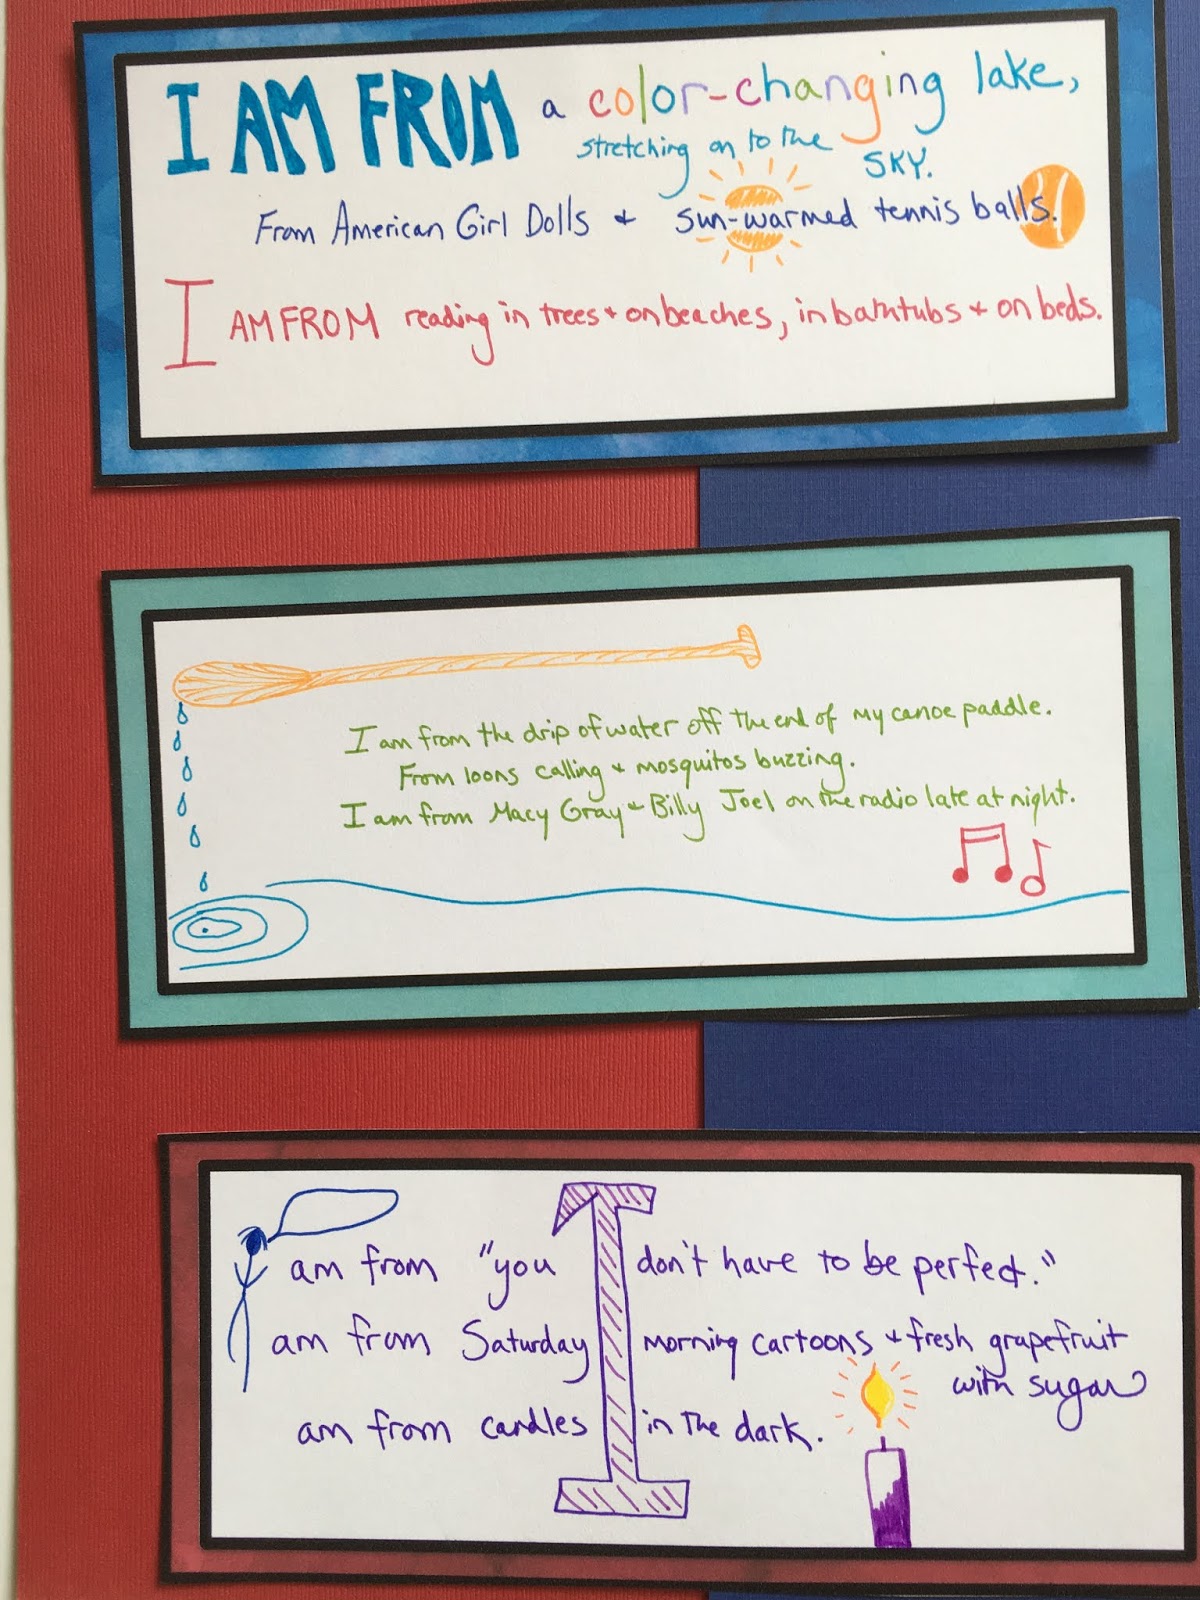 I AM FROM a color-changing lake,
stretching on to the SKY.
From American Girl Dolls + sun-warmed tennis balls.
I AM FROM reading in trees + on beaches, in bathtubs + on beds.
I am from the drip of water off the end of my canoe paddle.
From loons calling + mosquitos buzzing.
I am from Macy Gray + Billy Joel on the radio late at night.
I
am from "you don't have to be perfect."
am from Saturday morning cartoons + fresh grapefruit
with sugar
am from candles in the dark.